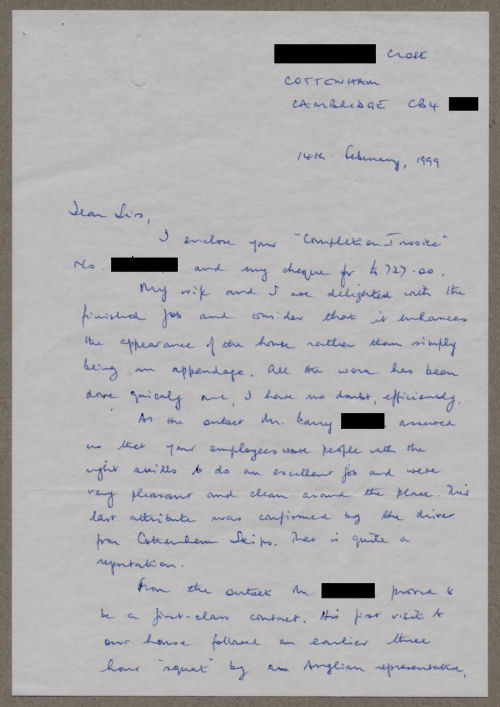 CLOSE
COTTENHAM
CAMBRIDGE CB4
14th February, 1999
Dear Sirs,
I enclose your "Completion Invoice"
No. and my cheque for £727.00.
My wife and I are delighted with the
finished job and consider that it enhances
the appearance of the house rather than simply
being an appendage. All the work has been
done quickly and, I have no doubt, efficiently.
At the outset Mr Barry assured
us that your employees were people with the
right skills to do an excellent job and were
very pleasant and clean around the place. This
last attribute was confirmed by the driver
from Cottenham Skips. That is quite a
reputation.
From the outset Mr. proved to
be a first-class contact. His first visit to
our house followed an earlier three
hour "squat" by an Anglian representative,